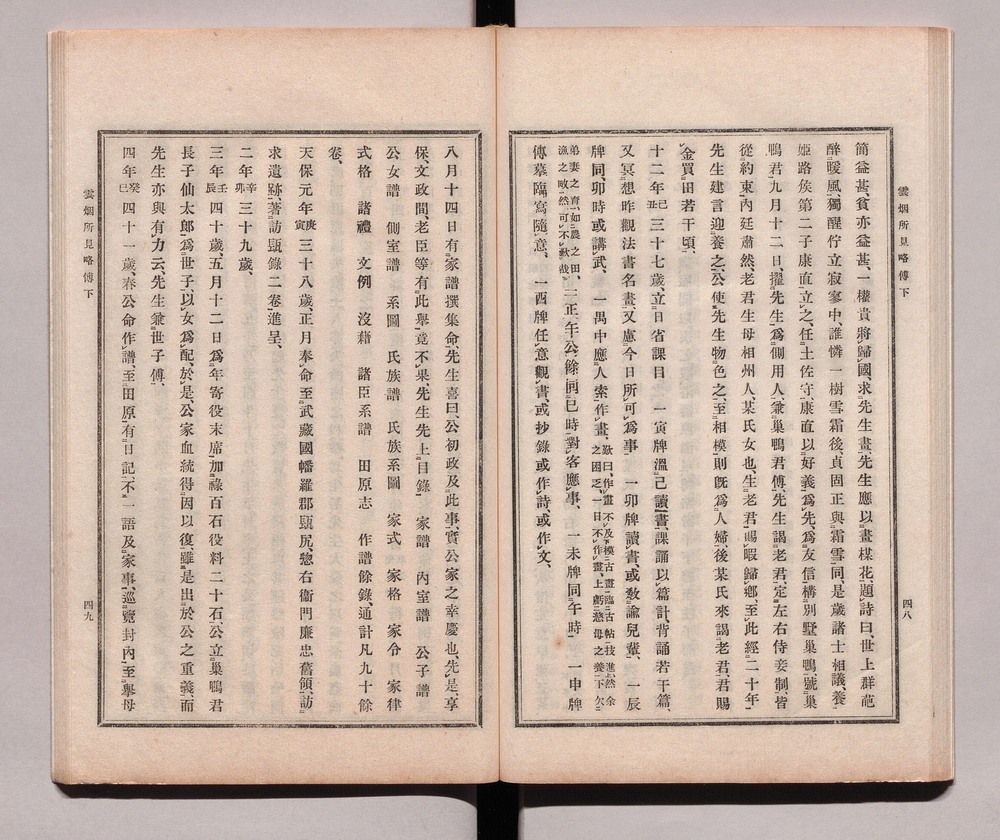 雲烟所見略傳下
四八
簡益甚貧亦益甚、一權貴將歸國、求先生畫、先生應以畫楳花、題詩曰、世上群葩
醉暖風、獨醒佇立寂寥中、誰憐一樹雪霜後、貞固正與霜雪同、是歲諸士相議、養
姫路侯第二子康直立之、任土佐守、康直以好義爲先、爲友信構別墅巢鴨、號巢
鴨君、九月十二日、擢先生爲側用人、兼巢鴨君傅、先生謁老君、定左右侍妾制、皆
從約束、內廷肅然、老君生母相州人、某氏女也、生老君、賜暇歸鄕、至此經二十年、
先生建言迎養之、公使先生物色之、至相模則旣爲人婦、後某氏來謁老君、君賜
金買田若干頃、
十二年己丑三十七歲、立日省課目　一寅牌溫己讀書、課誦以篇計、背誦若干篇、
又冥想昨觀法書名畫、又慮今日所可爲事　一卯牌讀書、或敎諭兒輩、一辰
牌同卯時或講武、一禺中應人索作畫、歎曰、作畫不及模古畫臨古帖、技進、然余之困乏、一日不作畫、上虧慈母之養、下欠
弟妻之育、如農之田、漁之畋、然可不歎哉、一正午公餘同巳時、對客應事、一未牌同午時、一申牌
傳摹臨寫隨意、一酉牌任意觀書、或抄錄或作詩、或作文、
八月十四日有家譜撰集命、先生喜曰、公初政及此事、實公家之幸慶也、先是享
保文政間、老臣等有此擧、竟不果、先生先上目錄　家譜　內室譜　公子譜
公女譜　側室譜　系圖　氏族譜　氏族系圖　家式　家格　家令　家律
式格　諸禮　文例　沒藉　諸臣系譜　田原志　作譜餘錄、通計凡九十餘
卷、
天保元年庚寅三十八歲、正月奉命至武藏國幡羅郡㼽尻、惣右衞門廉忠舊領、訪
求遺跡、著訪㼽錄二卷進呈、
二年辛卯三十九歲、
三年壬辰四十歲、五月十二日爲年寄役末席、加祿百石役料二十石、公立巢鴨君
長子仙太郎爲世子、以女爲配、於是公家血統得因以復、雖是出於公之重義、而
先生亦與有力云、先生兼世子傅、
四年癸巳四十一歲、春公命作譜、至田原、有日記、不一語及家事、巡覽封內、至擧母
雲烟所見略傳下
四九